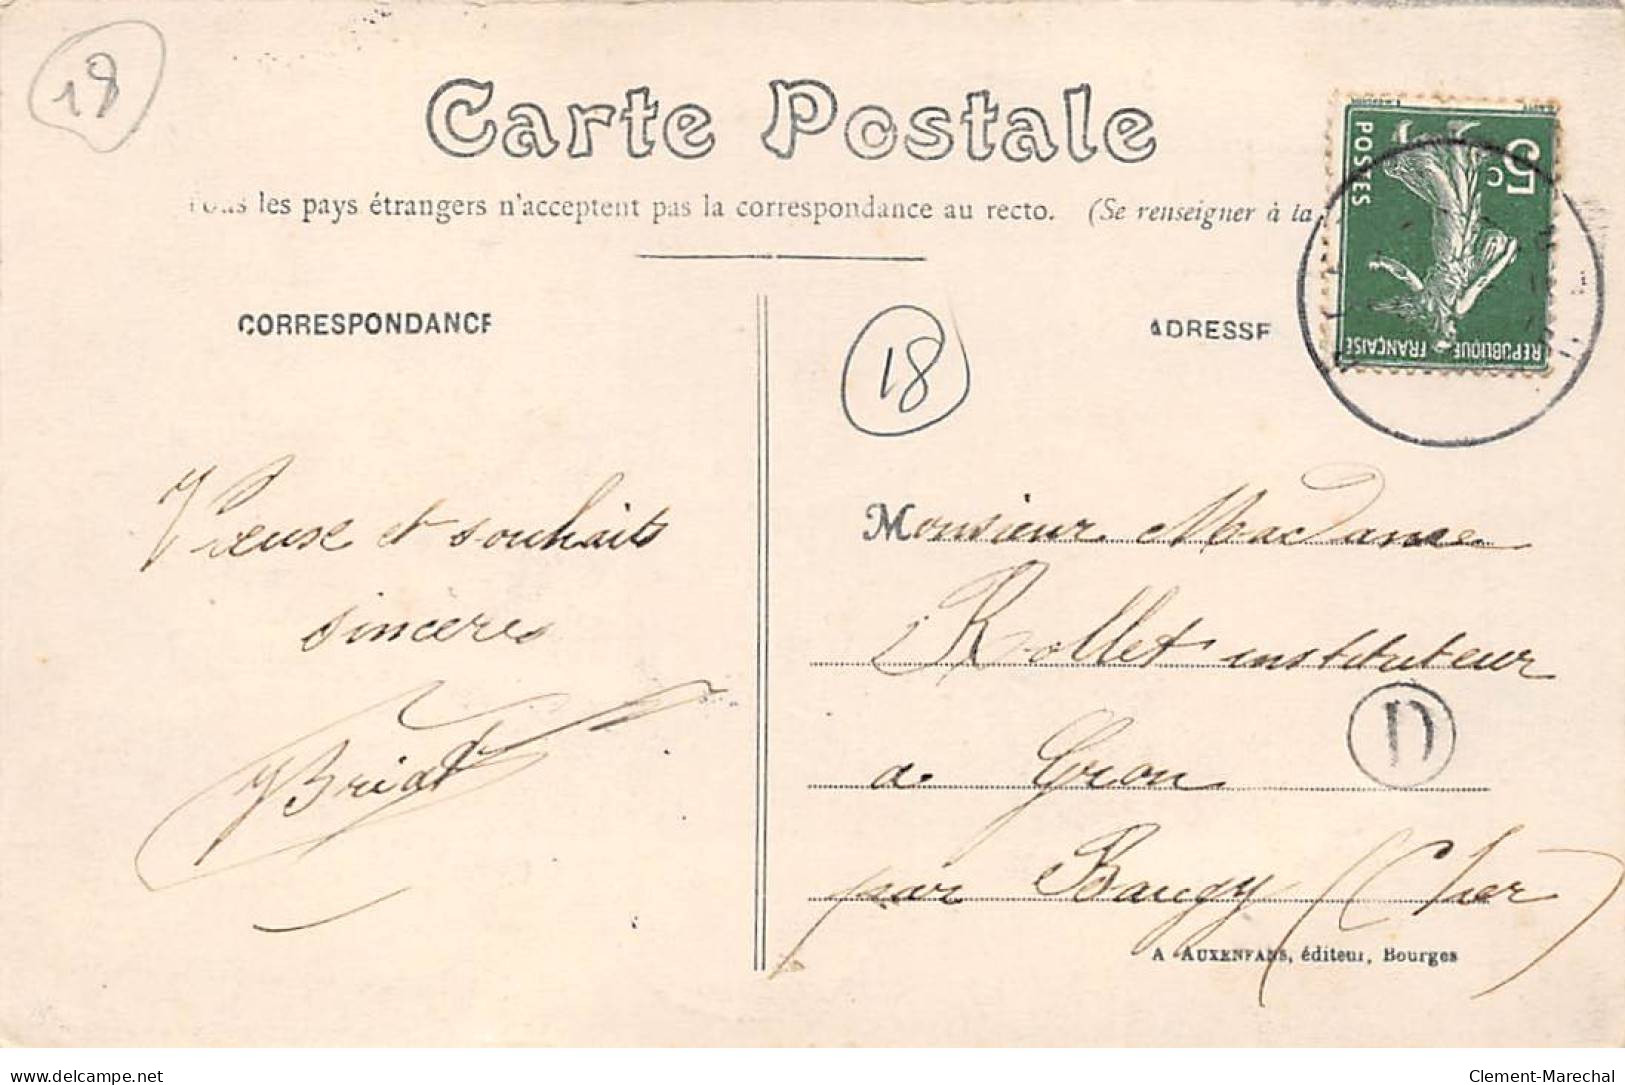 18
Carte Postale
Tous les pays étrangers n'acceptent pas la correspondance au recto. (Se renseigner à la
5c
POSTES
REPUBLIQUE FRANÇAISE
CORRESPONDANCE
ADRESSE
18
et souhaits
sincères
Briat
Monsieur Madame
Rollet instituteur
a Gron
D
par Baugy (Cher)
A AUXENFANS, éditeur, Bourges
delcampe.net
Clement-Marechal